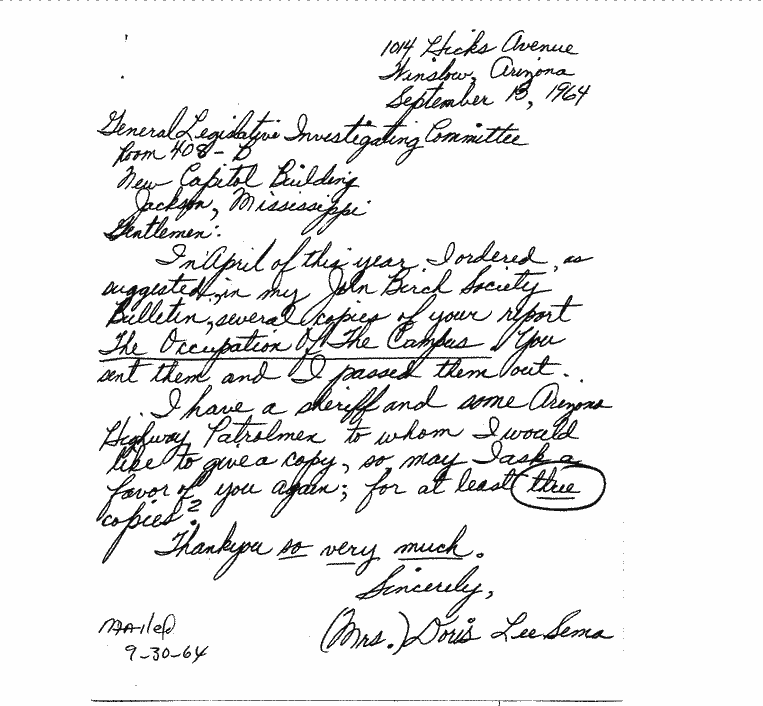 1014 Hicks Avenue
Winslow, Arizona
September 13, 1964
General Legislative Investigating Committee
Room 408-B
New Capitol Building
Jackson, Mississippi
Gentlemen:
In April of this year I ordered, as
suggested in my John Birch Society
Bulletin, several copies of your report
The Occupation Of The Campus. You
sent them and I passed them out.
I have a sheriff and some Arizona
Highway Patrolmen to whom I would
like to give a copy, so may I ask a
favor of you again; for at least three
copies?
Thankyou so very much.
Sincerely,
(Mrs.) Doris Lee Sema
Mailed
9-30-64